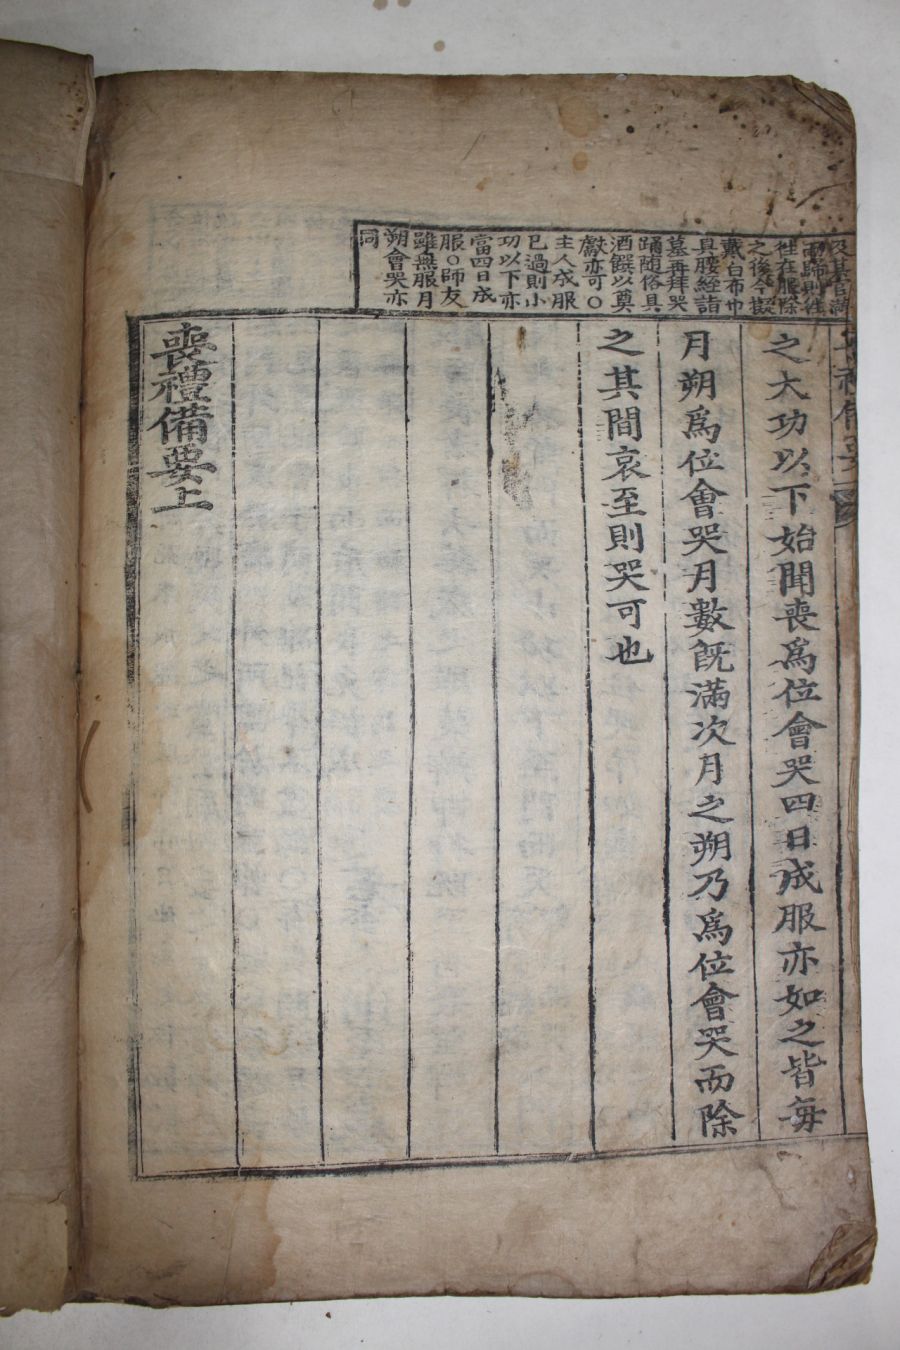 而歸則徃
徃在服除
之後今擬
戴白布巾
具腰絰詣
墓再拜哭
踊随俗具
酒饌以奠
獻亦可○
主人成服
已過則小
功以下亦
當四日成
服○師友
雖無服月
朔會哭亦
同
之大功以下始聞喪爲位會哭四日成服亦如之皆每
月朔爲位會哭月數旣滿次月之朔乃爲位會哭而除
之其間哀至則哭可也
喪禮備要上